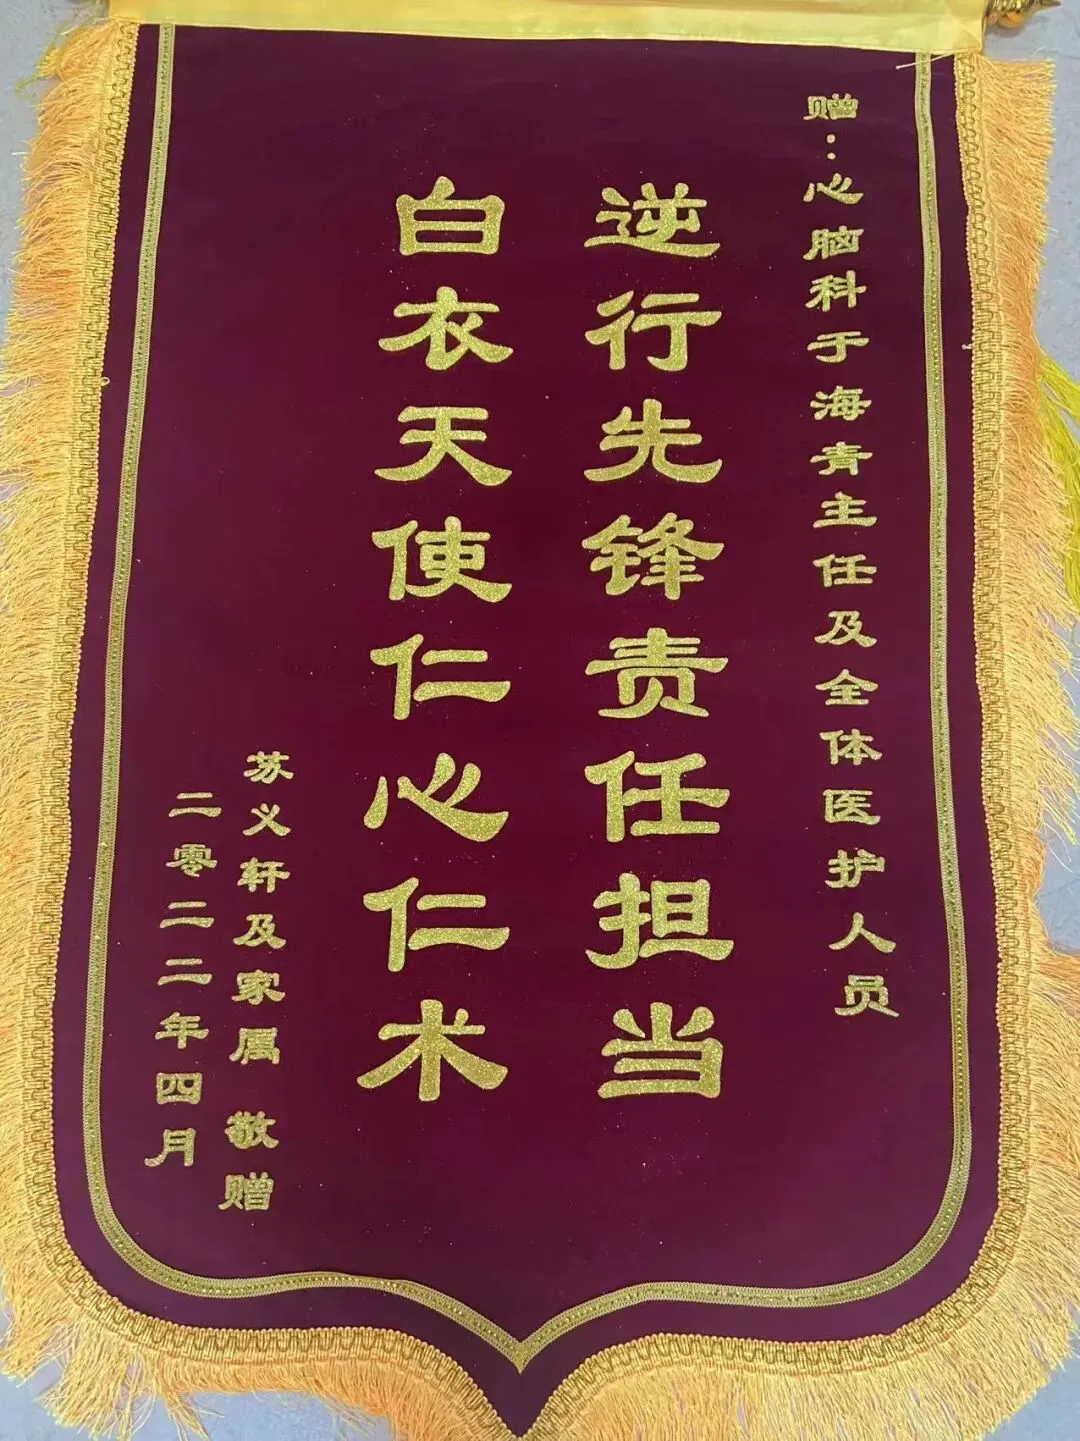 赠：心脑科于海青主任及全体医护人员
逆行先锋责任担当
白衣天使仁心仁术
苏义轩及家属 敬赠
二零二二年四月